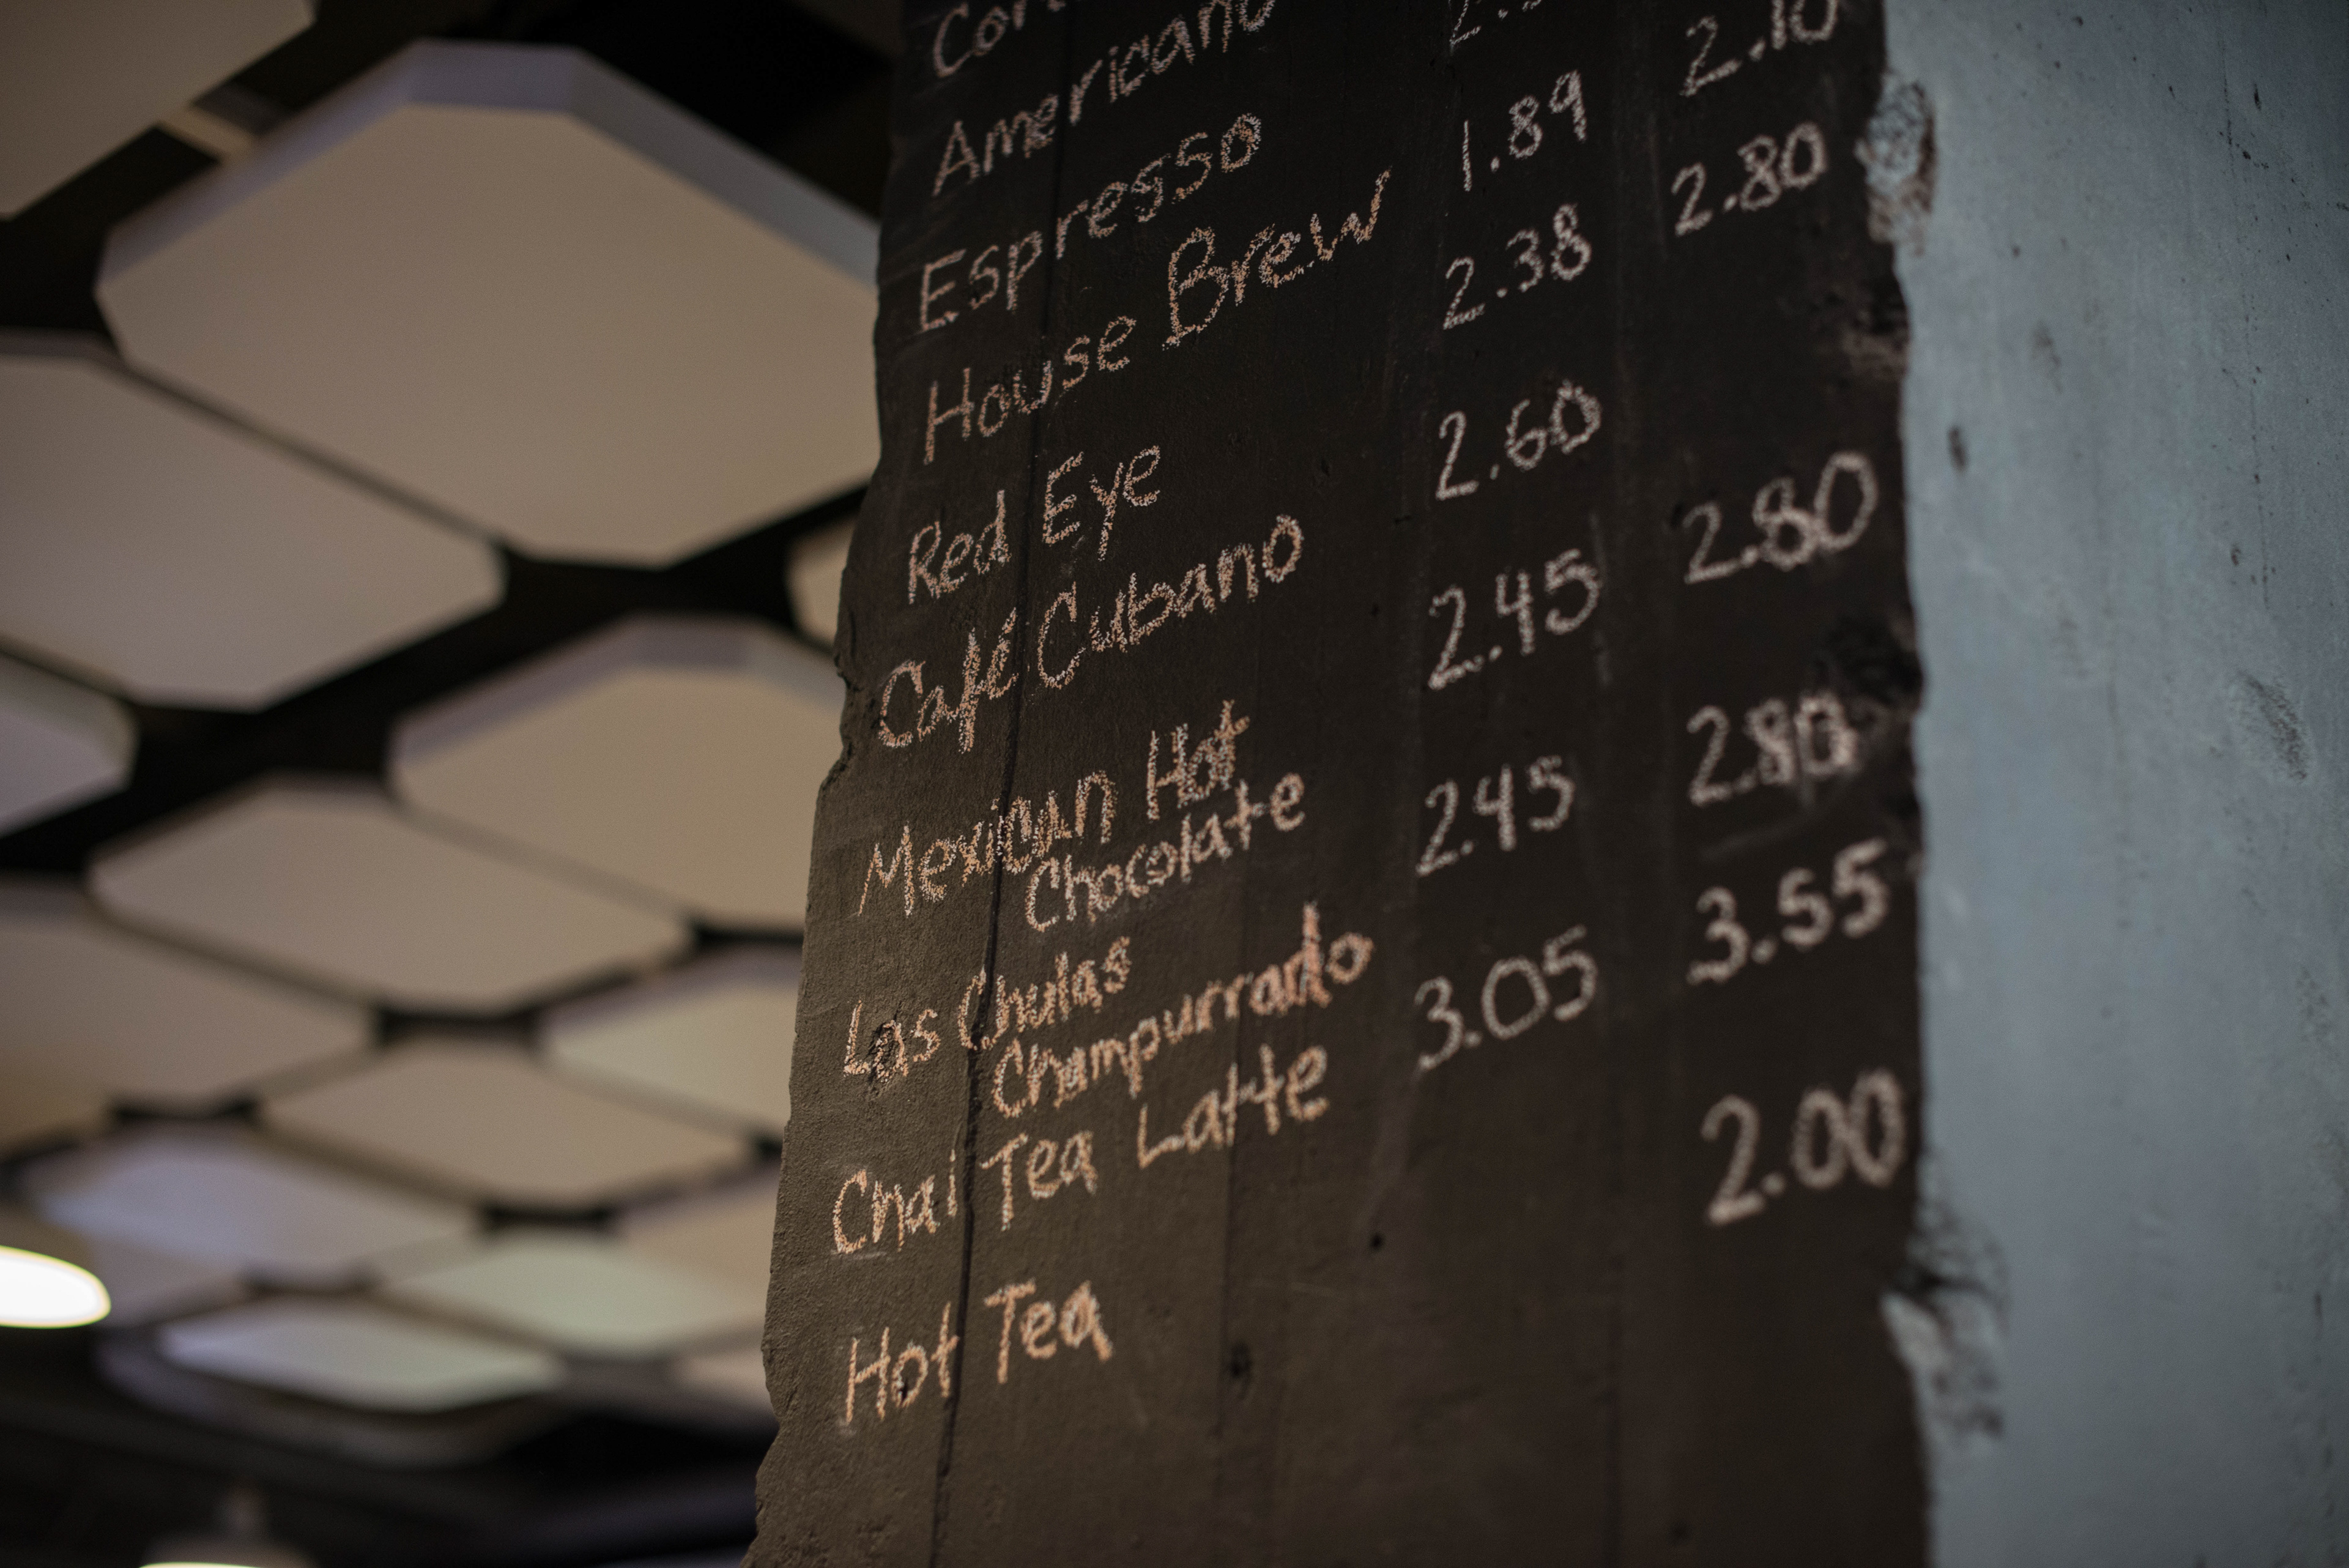 Americano
Espresso
House Brew 1.89 2.10
Red Eye 2.38 2.80
Café Cubano 2.60
Mexican Hot 2.45 2.80
Chocolate
Las Chulas 2.45 2.80
Champurrado
Chai Tea Latte 3.05 3.55
Hot Tea 2.00